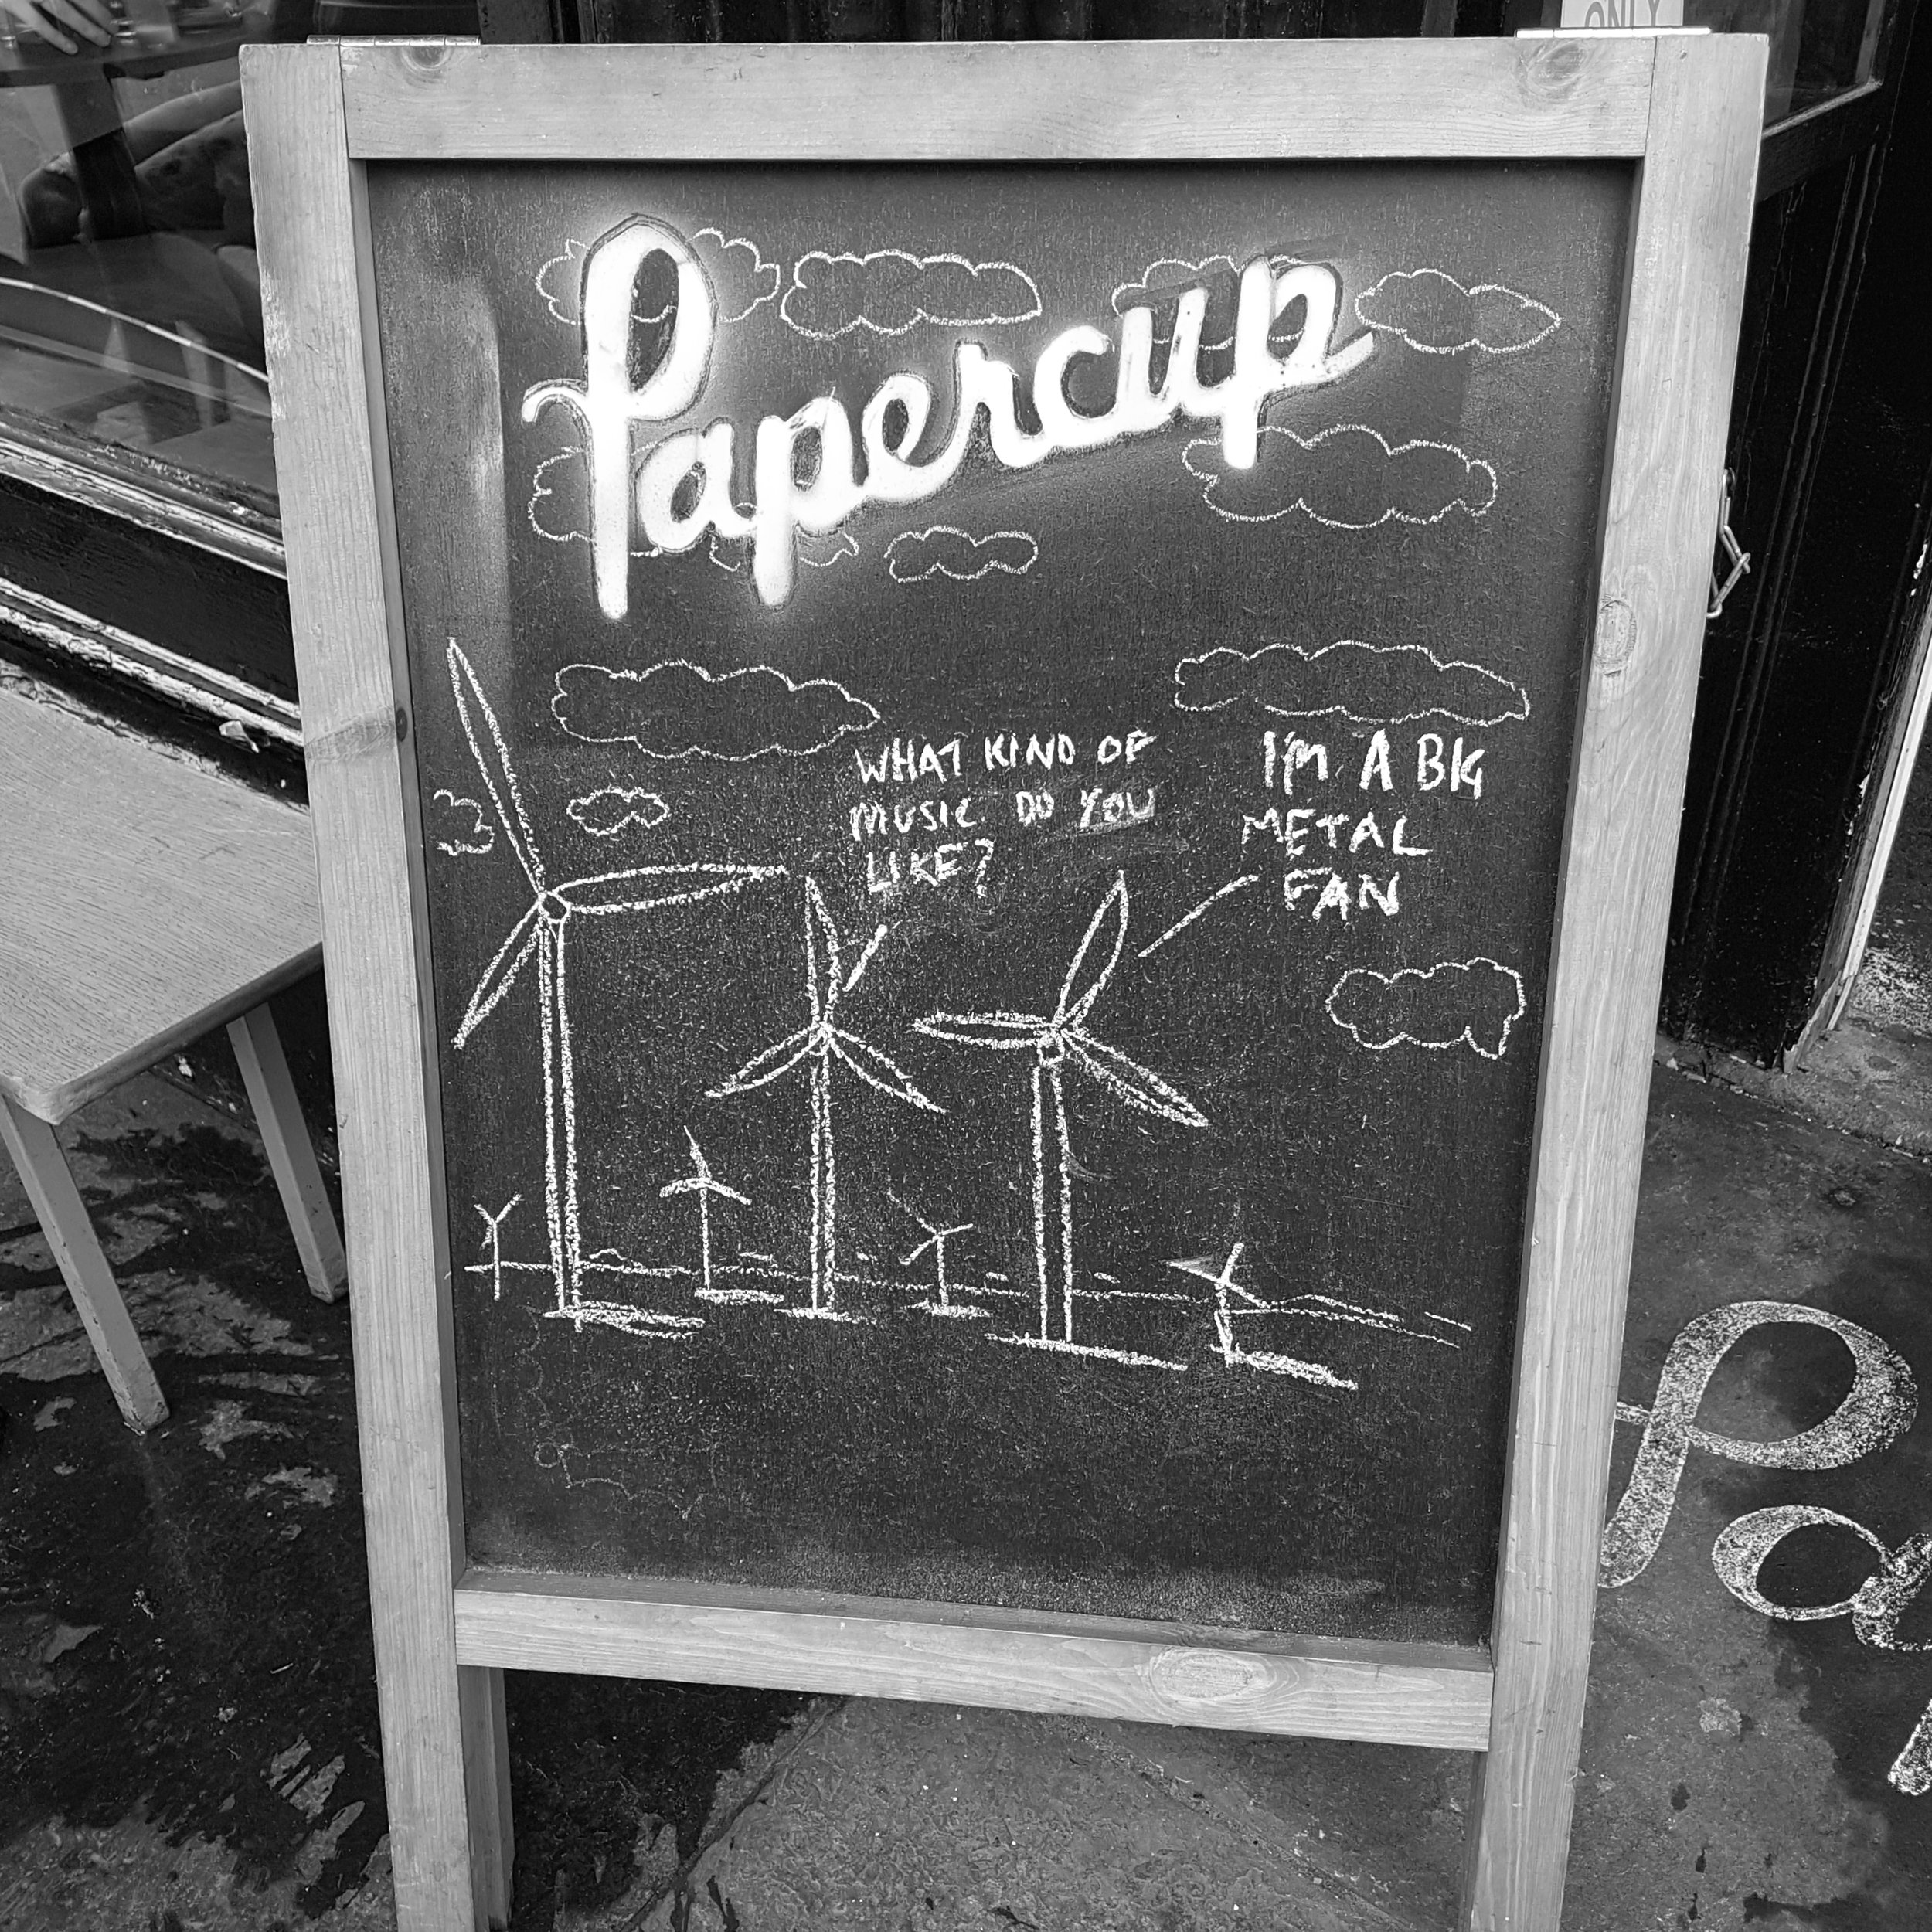 ONLY
Papercup
WHAT KIND OF
MUSIC DO YOU
LIKE?
I'M A BIG
METAL
FAN
Pa